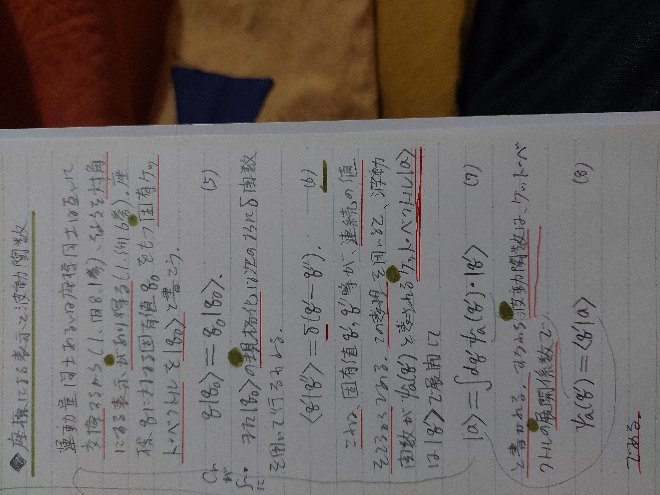 ◆座標による表示と波動関数
運動量同士あるいは座標同士は互いに
交換するから(1.四8.1参)、それらを対角
にする表示があり得る(1.三川.6参)。座
標qに対する固有値q₀をもつ固有ケッ
ト・ベクトルを|q₀>と書こう。
q|q₀> = q₀|q₀> (5)
それ|q₀>の規格化は次のようにδ関数
を用いて行われる。
<q'|q''> = δ(q'-q''). (6)
これは、固有値q', q''等が、連続の値
をとるからである。この表現を用いると、波動
関数がψa(q')と表されるケット・ベクトル|a>
は|q'>で展開して
|a> = ∫dq'ψa(q')・|q'> (7)
と書かれる。すなわち波動関数は、ケット・ベ
クトルの展開係数で
ψa(q') = <q'|a> (8)
である。